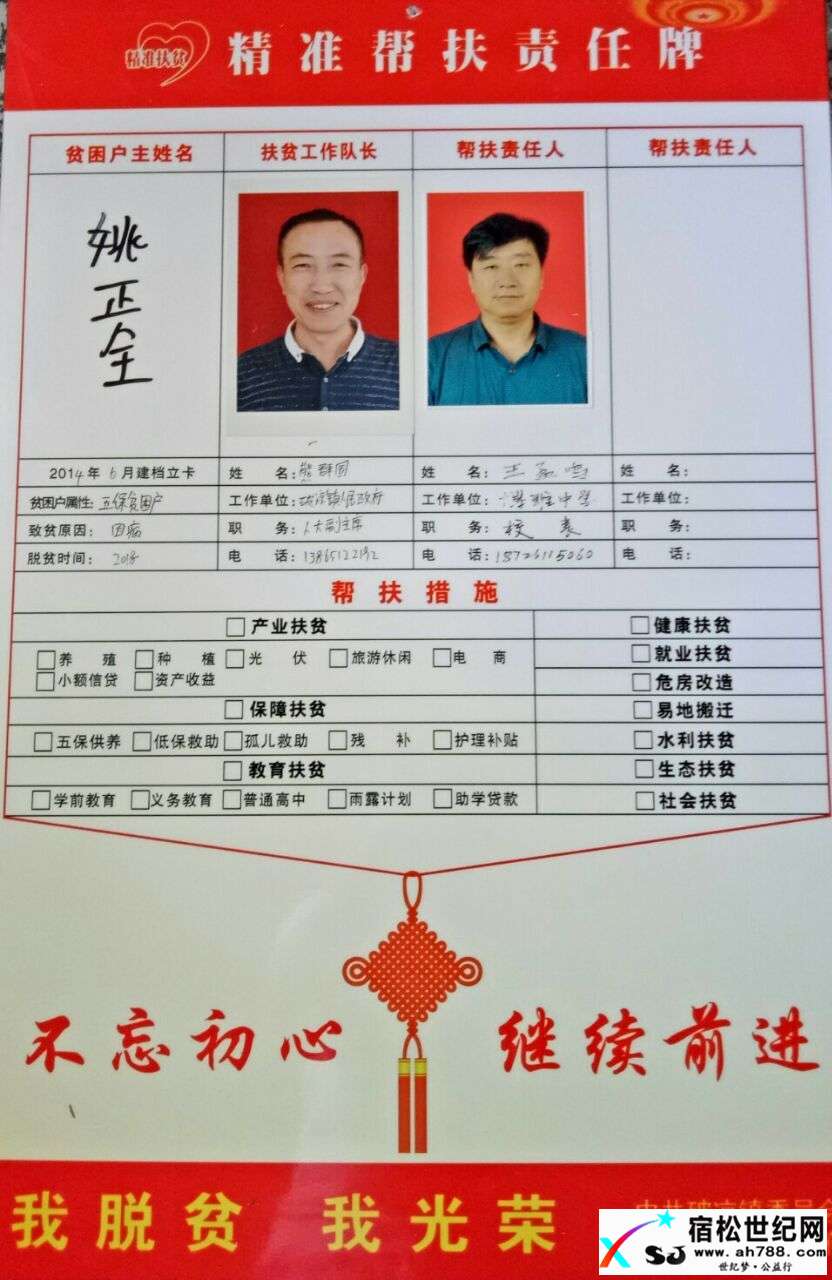 精准扶贫
精准帮扶责任牌
贫困户主姓名 扶贫工作队长 帮扶责任人 帮扶责任人
姚正全
2014年6月建档立卡 姓 名:熊群国 姓 名: 姓 名:
贫困户属性:五保贫困户 工作单位: 工作单位: 中学 工作单位:
致贫原因:因病 职 务:人大副主席 职 务:校长 职 务:
脱贫时间:2018 电 话: 电 话:18726115060 电 话:
帮扶措施
□产业扶贫 □健康扶贫
□养 殖 □种 植 □光 伏 □旅游休闲 □电 商 □就业扶贫
□小额信贷 □资产收益 □危房改造
□保障扶贫 □易地搬迁
□五保供养 □低保救助 □孤儿救助 □残 补 □护理补贴 □水利扶贫
□教育扶贫 □生态扶贫
□学前教育 □义务教育 □普通高中 □雨露计划 □助学贷款 □社会扶贫
不忘初心 继续前进
我脱贫 我光荣
宿松世纪网
SJ www.ah788.com
世纪梦·公益行